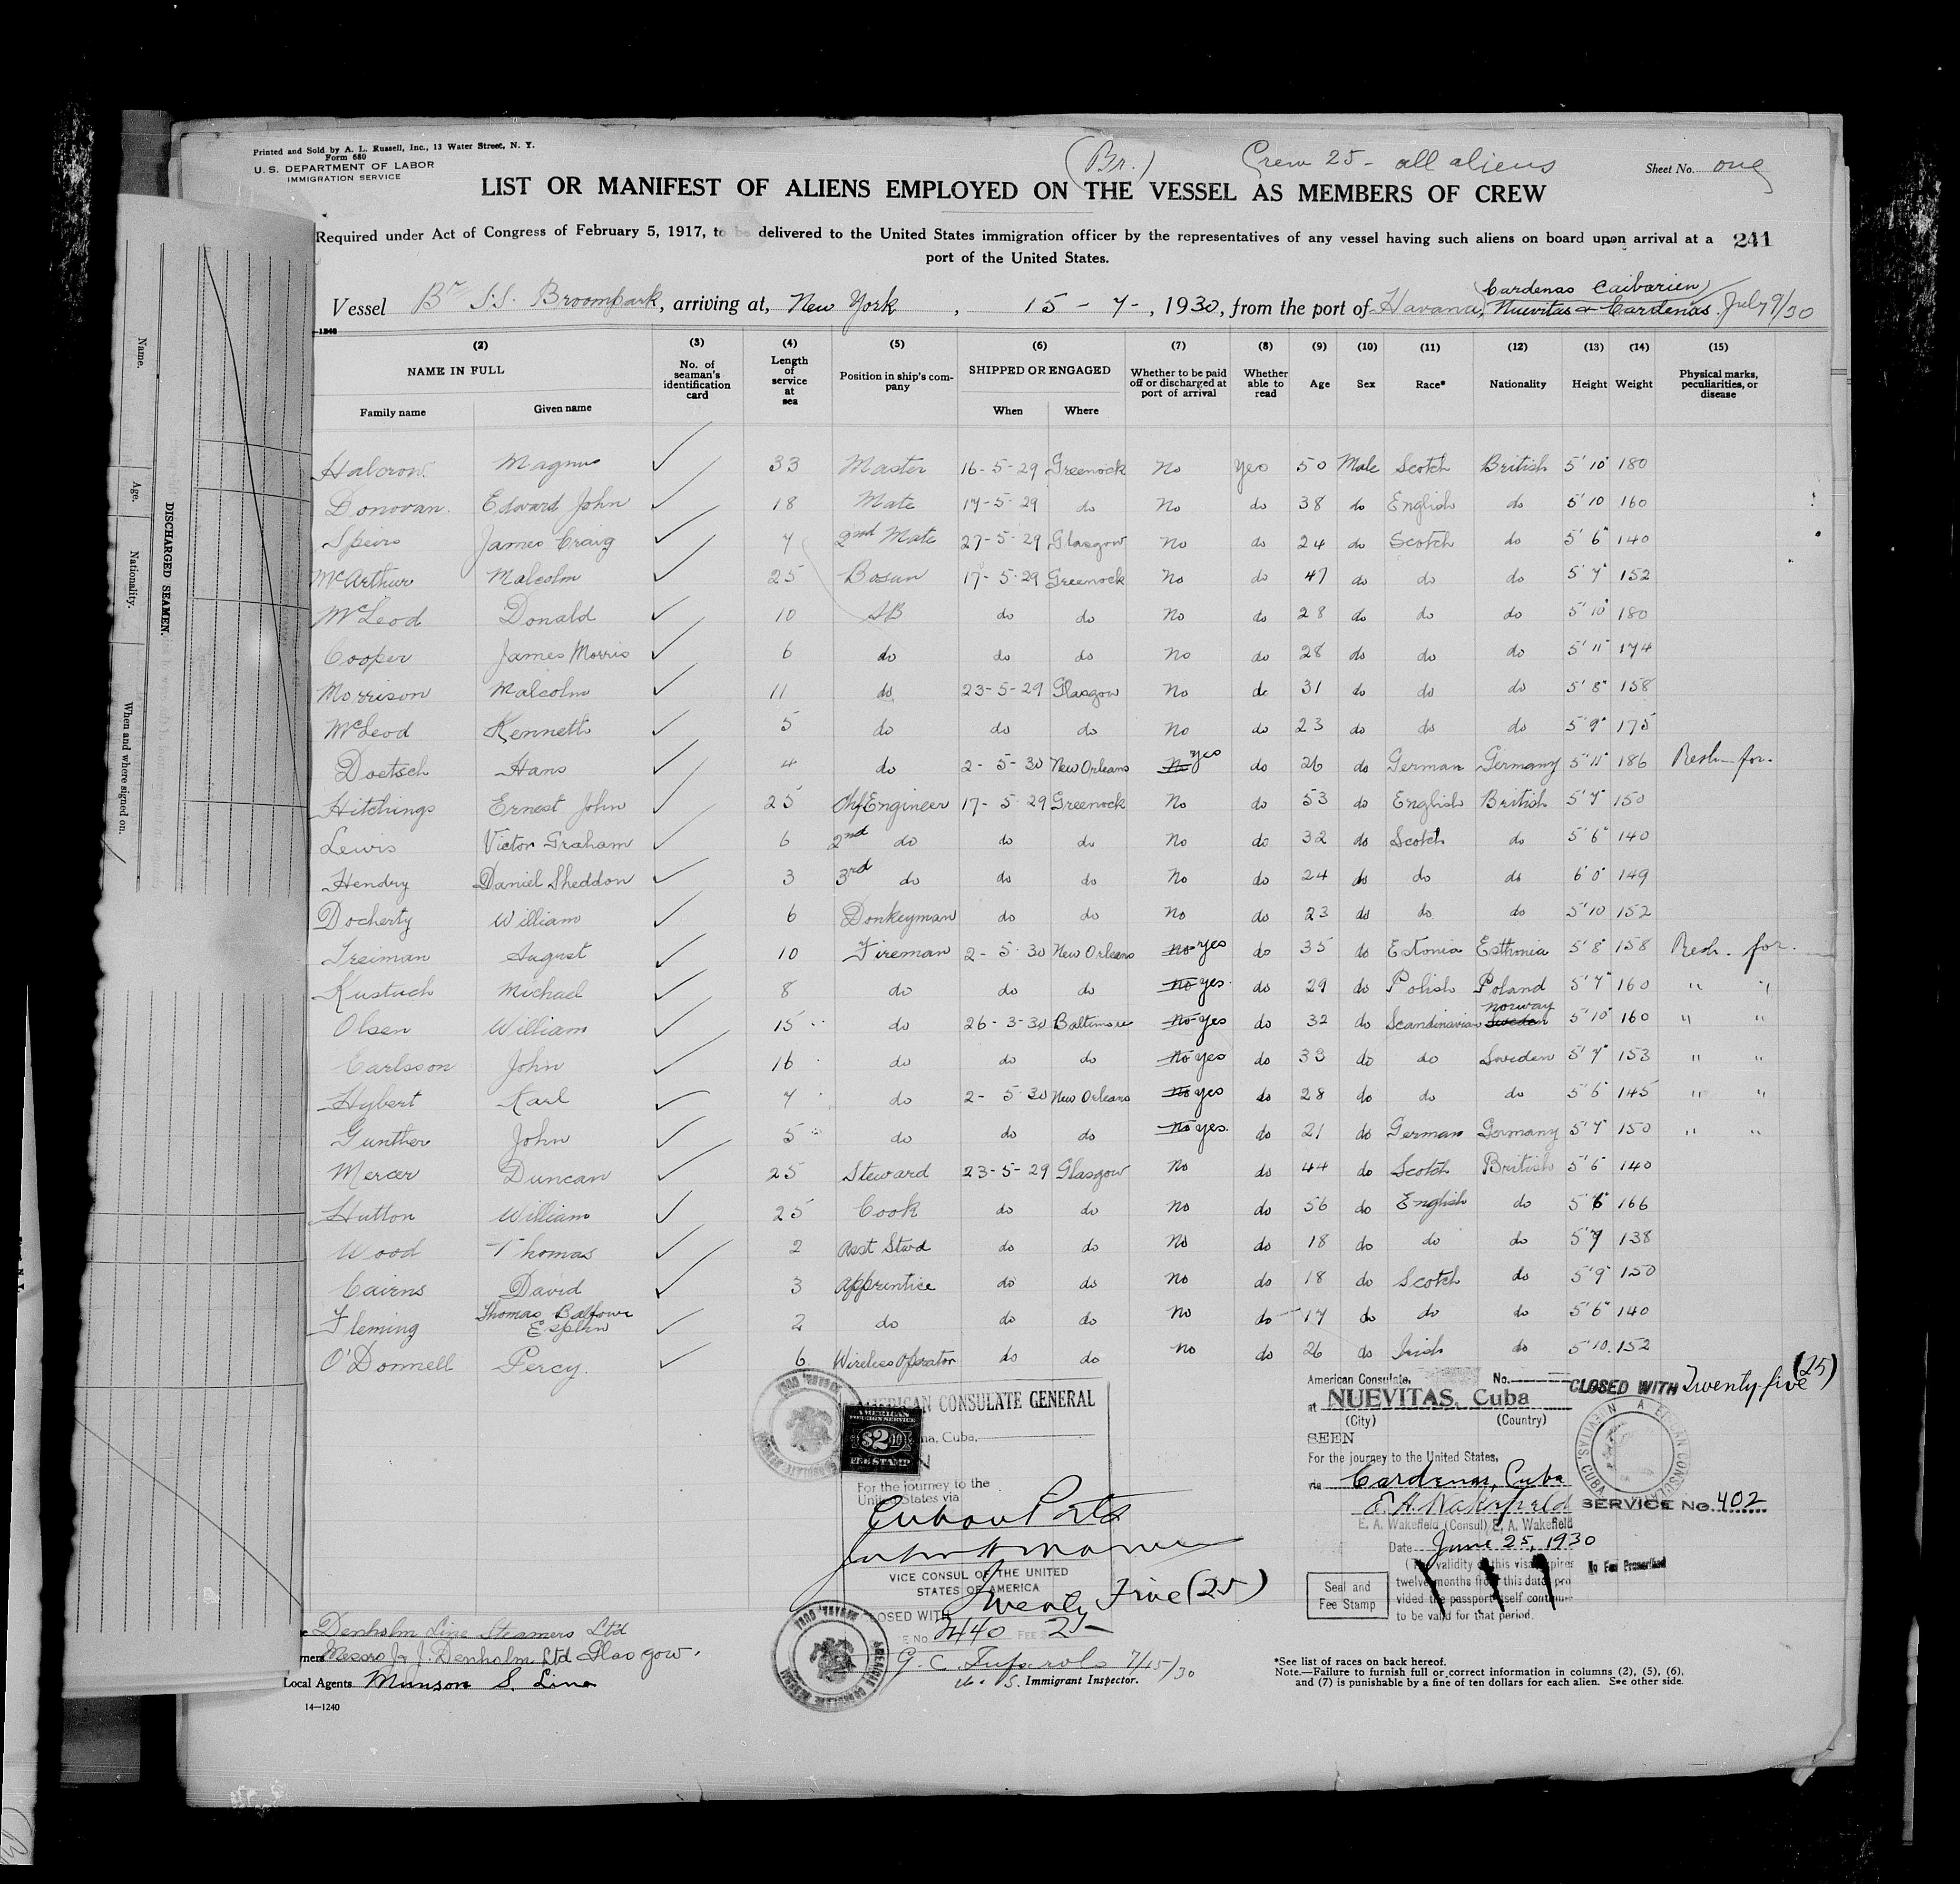 Printed and Sold by A. L. Russell, Inc., 13 Water Street, N. Y.
Form 680
U. S. DEPARTMENT OF LABOR
IMMIGRATION SERVICE
(Br.) Crew 25 - all aliens
Sheet No. one
LIST OR MANIFEST OF ALIENS EMPLOYED ON THE VESSEL AS MEMBERS OF CREW
Required under Act of Congress of February 5, 1917, to be delivered to the United States immigration officer by the representatives of any vessel having such aliens on board upon arrival at a 241
port of the United States.
Cardenas Caibarien
Vessel Br S.S. Broompark, arriving at, New York, 15 - 7 -, 1930, from the port of Havana, Nuevitas & Cardenas. July 9/30
(2) (3) (4) (5) (6) (7) (8) (9) (10) (11) (12) (13) (14) (15)
NAME IN FULL No. of seaman's identification card Length of service at sea Position in ship's company SHIPPED OR ENGAGED Whether to be paid off or discharged at port of arrival Whether able to read Age Sex Race* Nationality Height Weight Physical marks, peculiarities, or disease
Family name Given name When Where
Halcrow Magnus 33 Master 16-5-29 Greenock No Yes 50 Male Scotch British 5' 10" 180
Donovan. Edward John 18 Mate 17-5-29 do No do 38 do English do 5' 10 160
Speirs James Craig 7 2nd Mate 27-5-29 Glasgow No do 24 do Scotch do 5' 6" 140
McArthur Malcolm 25 Bosun 17-5-29 Greenock No do 47 do do do 5' 7" 152
McLeod Donald 10 AB do do No do 28 do do do 5' 10" 180
Cooper James Morris 6 do do do No do 28 do do do 5' 11" 174
Morrison Malcolm 11 do 23-5-29 Glasgow No do 31 do do do 5' 8" 158
McLeod Kenneth 5 do do do No do 23 do do do 5' 9" 175
Doetsch Hans 4 do 2-5-30 New Orleans No yes do 26 do German Germany 5' 11" 186 Resh - for.
Hitchings Ernest John 25 Chf Engineer 17-5-29 Greenock No do 53 do English British 5' 7" 150
Lewis Victor Graham 6 2nd do do do No do 32 do Scotch do 5' 6" 140
Hendry Daniel Sheddon 3 3rd do do do No do 24 do do do 6' 0" 149
Docherty William 6 Donkeyman do do No do 23 do do do 5' 10 152
Treiman August 10 Fireman 2-5-30 New Orleans No yes do 35 do Estonia Esthonia 5' 8" 158 Resh - for.
Kustuch Michael 8 do do do No yes do 29 do Polish Poland 5' 7" 160 " "
Olsen William 15 do 26-3-30 Baltimore No yes do 32 do Scandinavian Sweden Norway 5' 10" 160 " "
Carlsson John 16 do do do No yes do 33 do do Sweden 5' 7" 153 " "
Hybert Karl 7 do 2-5-30 New Orleans No yes do 28 do do do 5' 6 145 " "
Gunther John 5 do do do No yes do 21 do German Germany 5' 7" 150 " "
Mercer Duncan 25 Steward 23-5-29 Glasgow No do 44 do Scotch British 5' 6 140
Hutton William 25 Cook do do No do 56 do English do 5 6" 166
Wood Thomas 2 Asst Stwd do do No do 18 do do do 5' 7 138
Cairns David 3 Apprentice do do No do 18 do Scotch do 5' 9" 150
Fleming Thomas Balfour Esplin 2 do do do No do 17 do do do 5' 6" 140
O'Donnell Percy. 6 Wireless Operator do do No do 26 do Irish do 5' 10. 152
AMERICAN CONSULATE GENERAL
AMERICAN FOREIGN SERVICE
$2.00
FEE STAMP
Cuba.
For the journey to the
United States via
Cuban Ports
VICE CONSUL OF THE UNITED
STATES OF AMERICA
Twenty Five (25)
CLOSED WITH
No. 2440 FEE $ 2-
7/15/30
U. S. Immigrant Inspector.
American Consulate, No.
at NUEVITAS, Cuba
(City) (Country)
SEEN
For the journey to the United States,
via Cardenas, Cuba
E. A. Wakefield
E. A. Wakefield (Consul) E. A. Wakefield
Date June 25, 1930
(The validity of this visa expires
twelve months from this date pro
vided the passport itself continue
to be valid for that period.
Seal and
Fee Stamp
CLOSED WITH Twenty-five (25)
AMERICAN CONSULATE NUEVITAS, CUBA
SERVICE No. 402
No Fee Prescribed
Denholm Line Steamers Ltd
Messrs J. & J. Denholm Ltd Glasgow.
Local Agents Munson S. Line
14—1240
*See list of races on back hereof.
Note.—Failure to furnish full or correct information in columns (2), (5), (6),
and (7) is punishable by a fine of ten dollars for each alien. See other side.
DISCHARGED SEAMEN.
Name. Age. Nationality. When and where signed on.